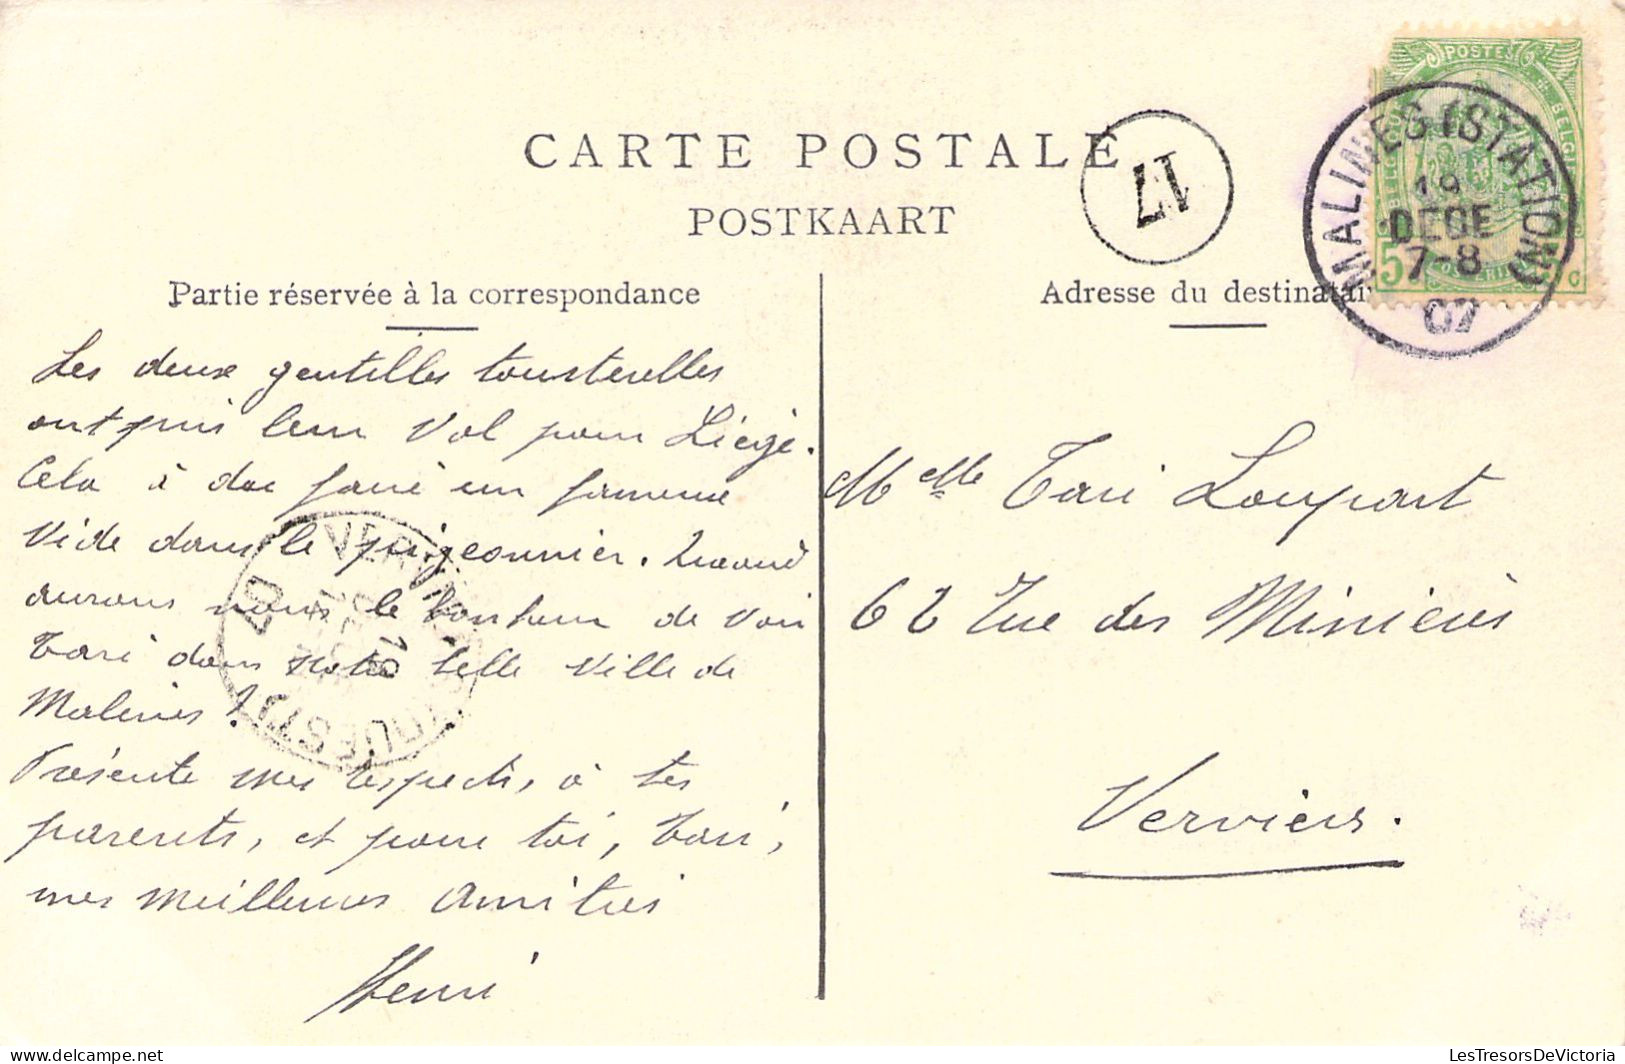 CARTE POSTALE
POSTKAART
17
POSTES
BELGIQUE BELGIE
5 C
MALINES (STATION)
19
DECE
7-8
07
Partie réservée à la correspondance
Adresse du destinatai
Les deux gentilles tourterelles
ont pris leur vol pour Liége.
Cela à dû faire un fameux
vide dans le pigeonnier. Quand
aurons nous le bonheur de voir
Tari dans notre belle ville de
Malines?
Présente mes respects, à tes
parents, et pour toi, Tari,
mes meilleures amitiés
Henri
VERVIERS (OUEST)
19
07
Melle Tari Loupart
62 Rue des Minières
Verviers.
LesTresorsDeVictoria